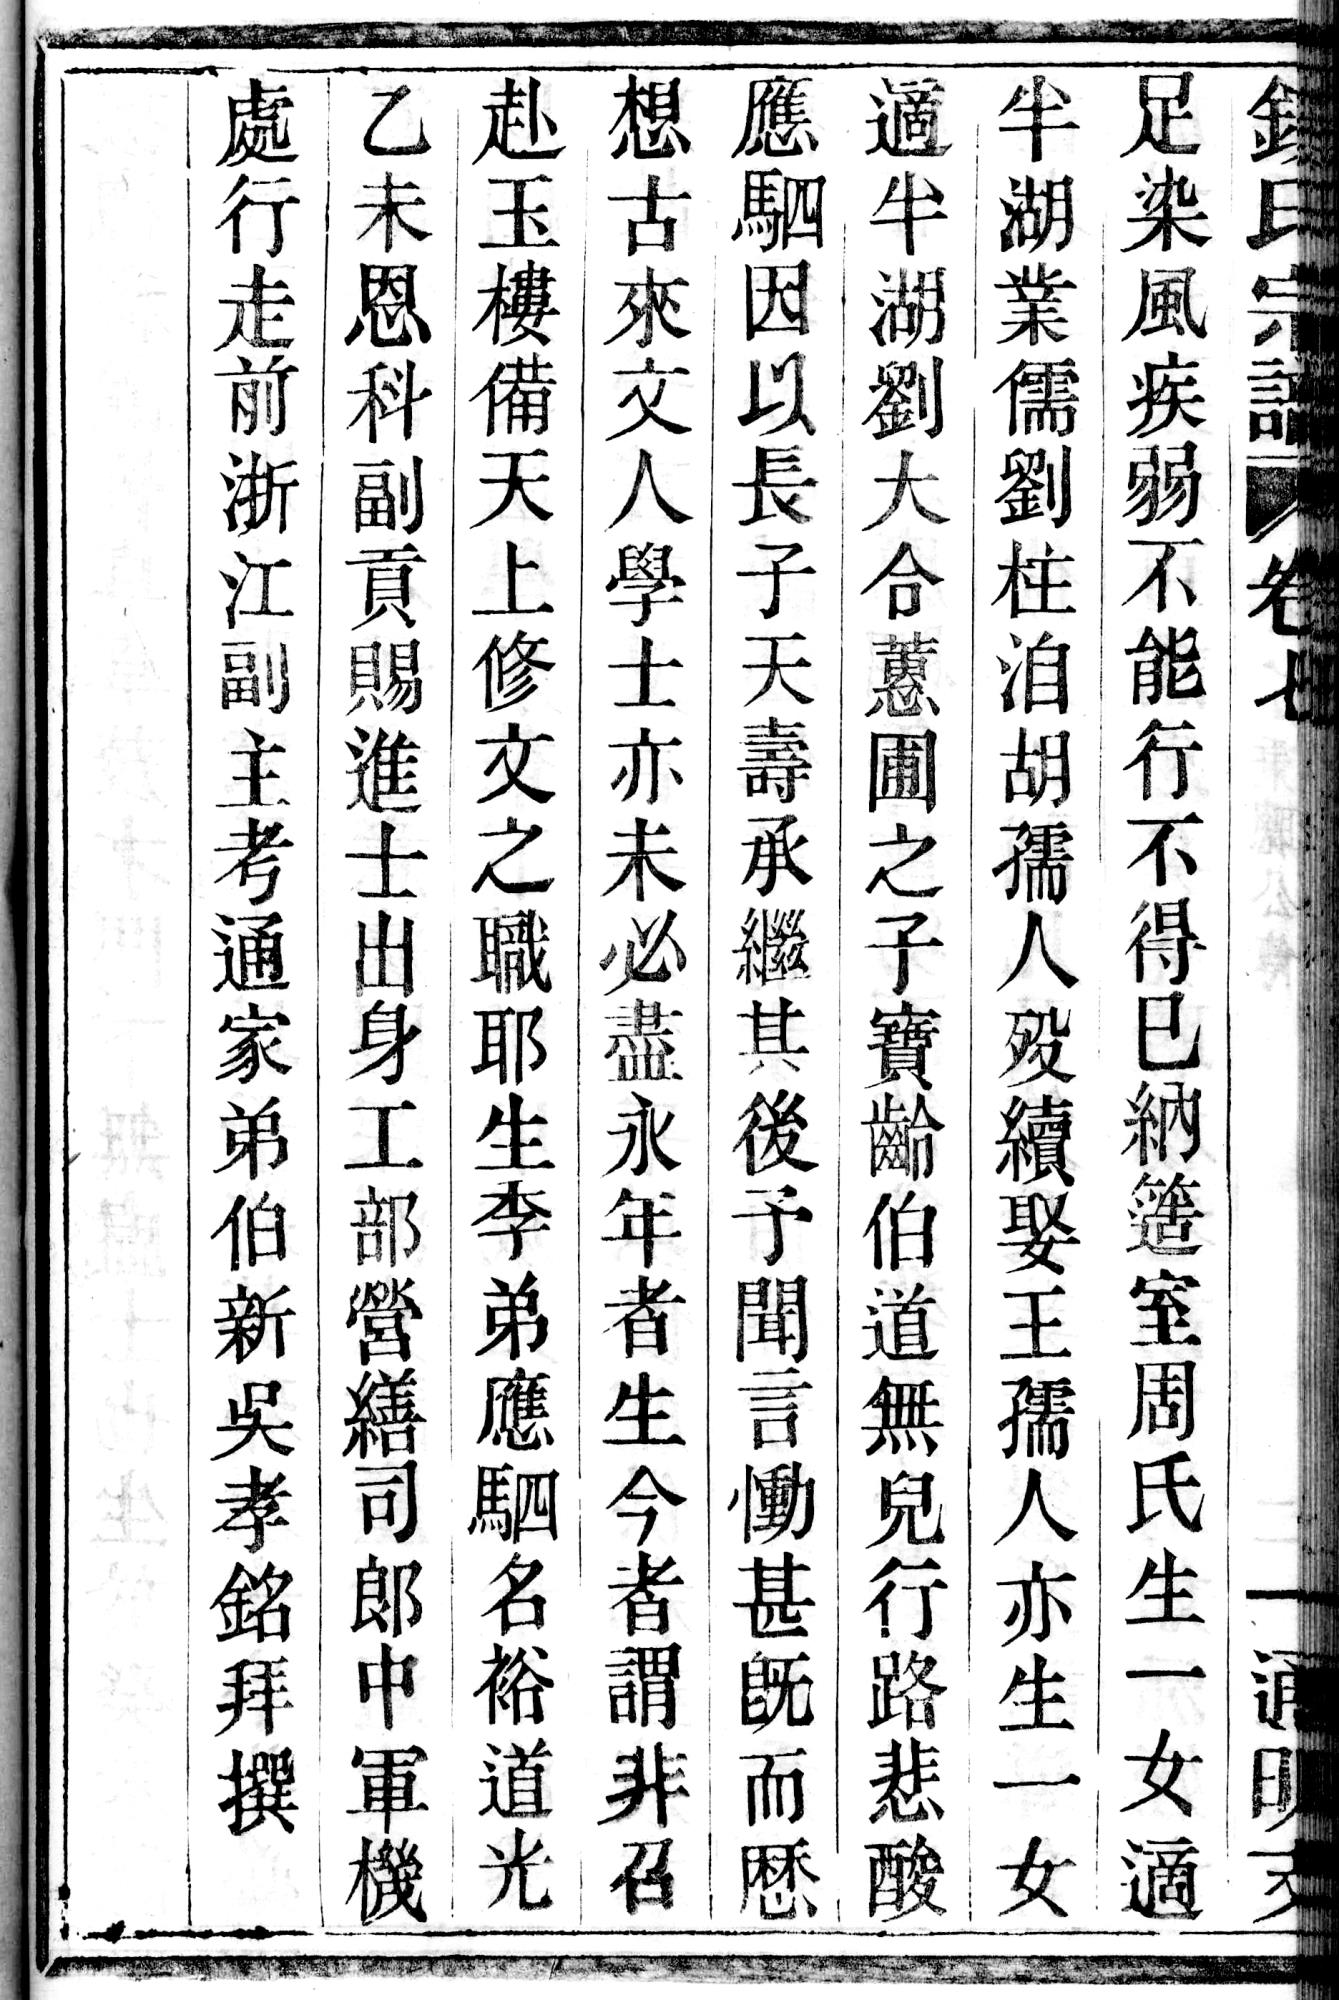 氏宗譜 卷七 一 通明
足染風疾弱不能行不得已納簉室周氏生一女適
半湖業儒劉柱洎胡孺人歿續娶王孺人亦生一女
適半湖劉大合蕙圃之子寶齡伯道無兒行路悲酸
應駟因以長子天壽承繼其後予聞言慟甚既而厯
想古來文人學士亦未必盡永年者生今者謂非召
赴玉樓備天上修文之職耶生李弟應駟名裕道光
乙未恩科副貢賜進士出身工部營繕司郎中軍機
處行走前浙江副主考通家弟伯新吳孝銘拜撰